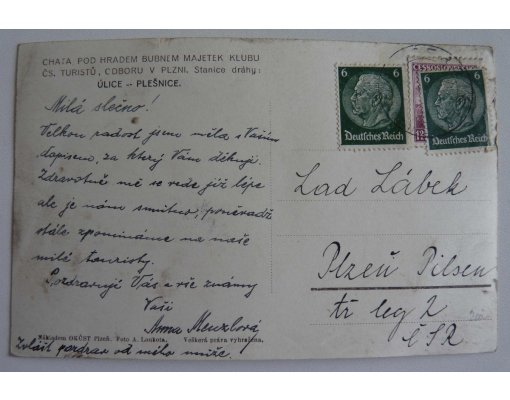 CHATA POD HRADEM BUBNEM MAJETEK KLUBU
ČS. TURISTŮ, ODBORU V PLZNI. Stanice dráhy:
ÚLICE -- PLEŠNICE.
Milá slečno!
Velkou radost jsem měla s Vašim
dopisem, za který Vám děkuji.
Zdravotně mě se vede již lépe
ale je nám smutno, poněvadž
stále zpomínáme na naše
milé touristy.
Pozdravuji Vás a vše známý
Vaši
Anna Menzlová
Nákladem OKČST Plzeň. Foto A. Loukota. Veškerá práva vyhražena.
Zvlášť pozdrav od mého muže.
6 6
Deutsches Reich
6 6
Deutsches Reich
ČESKOSLOV
12
Lad Lábek
Plzeň Pilsen
tř leg 2
ČSR